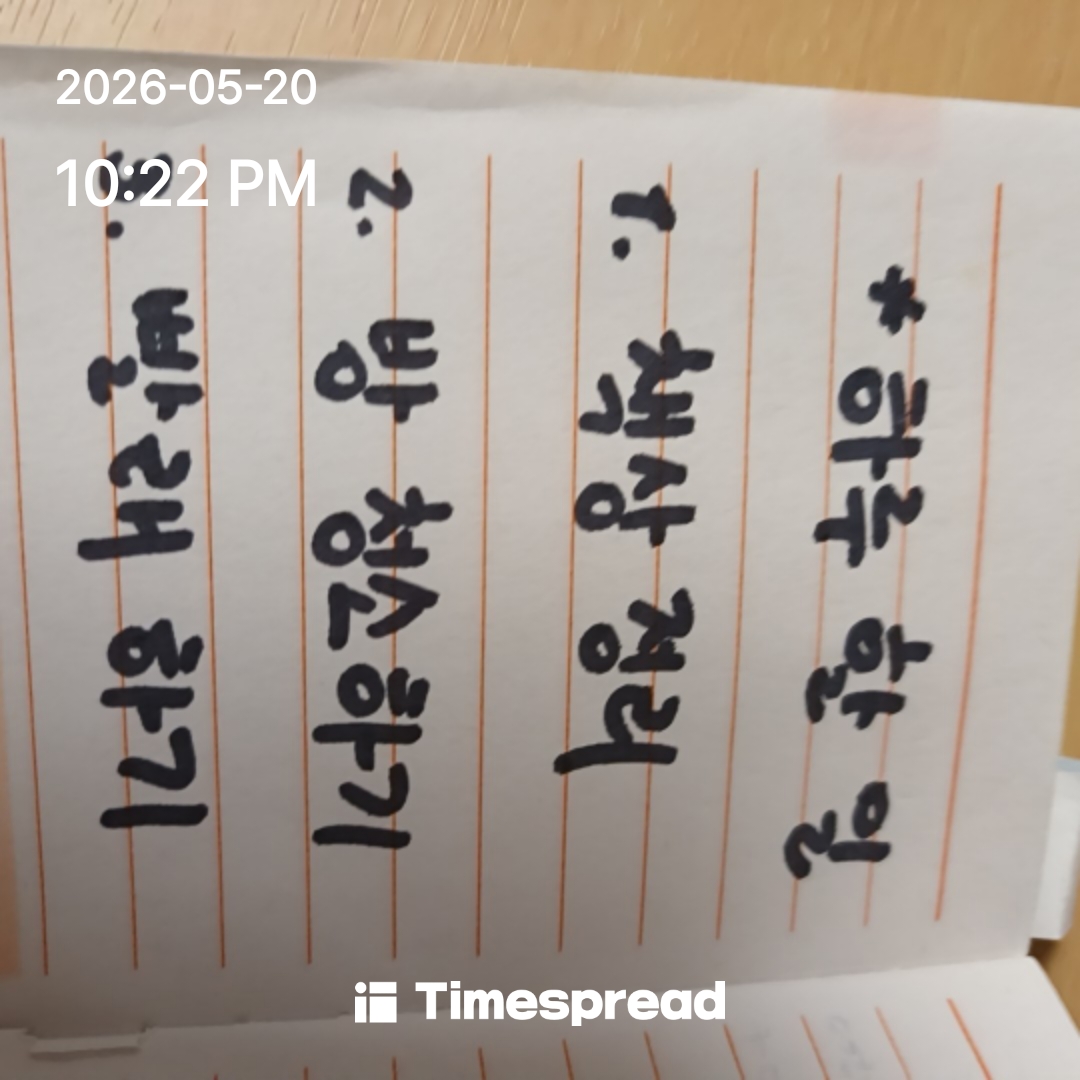 2026-05-20
10:22 PM
*하루 할 일
1. 책상 정리
2. 방 청소하기
3. 빨래 하기
Timespread